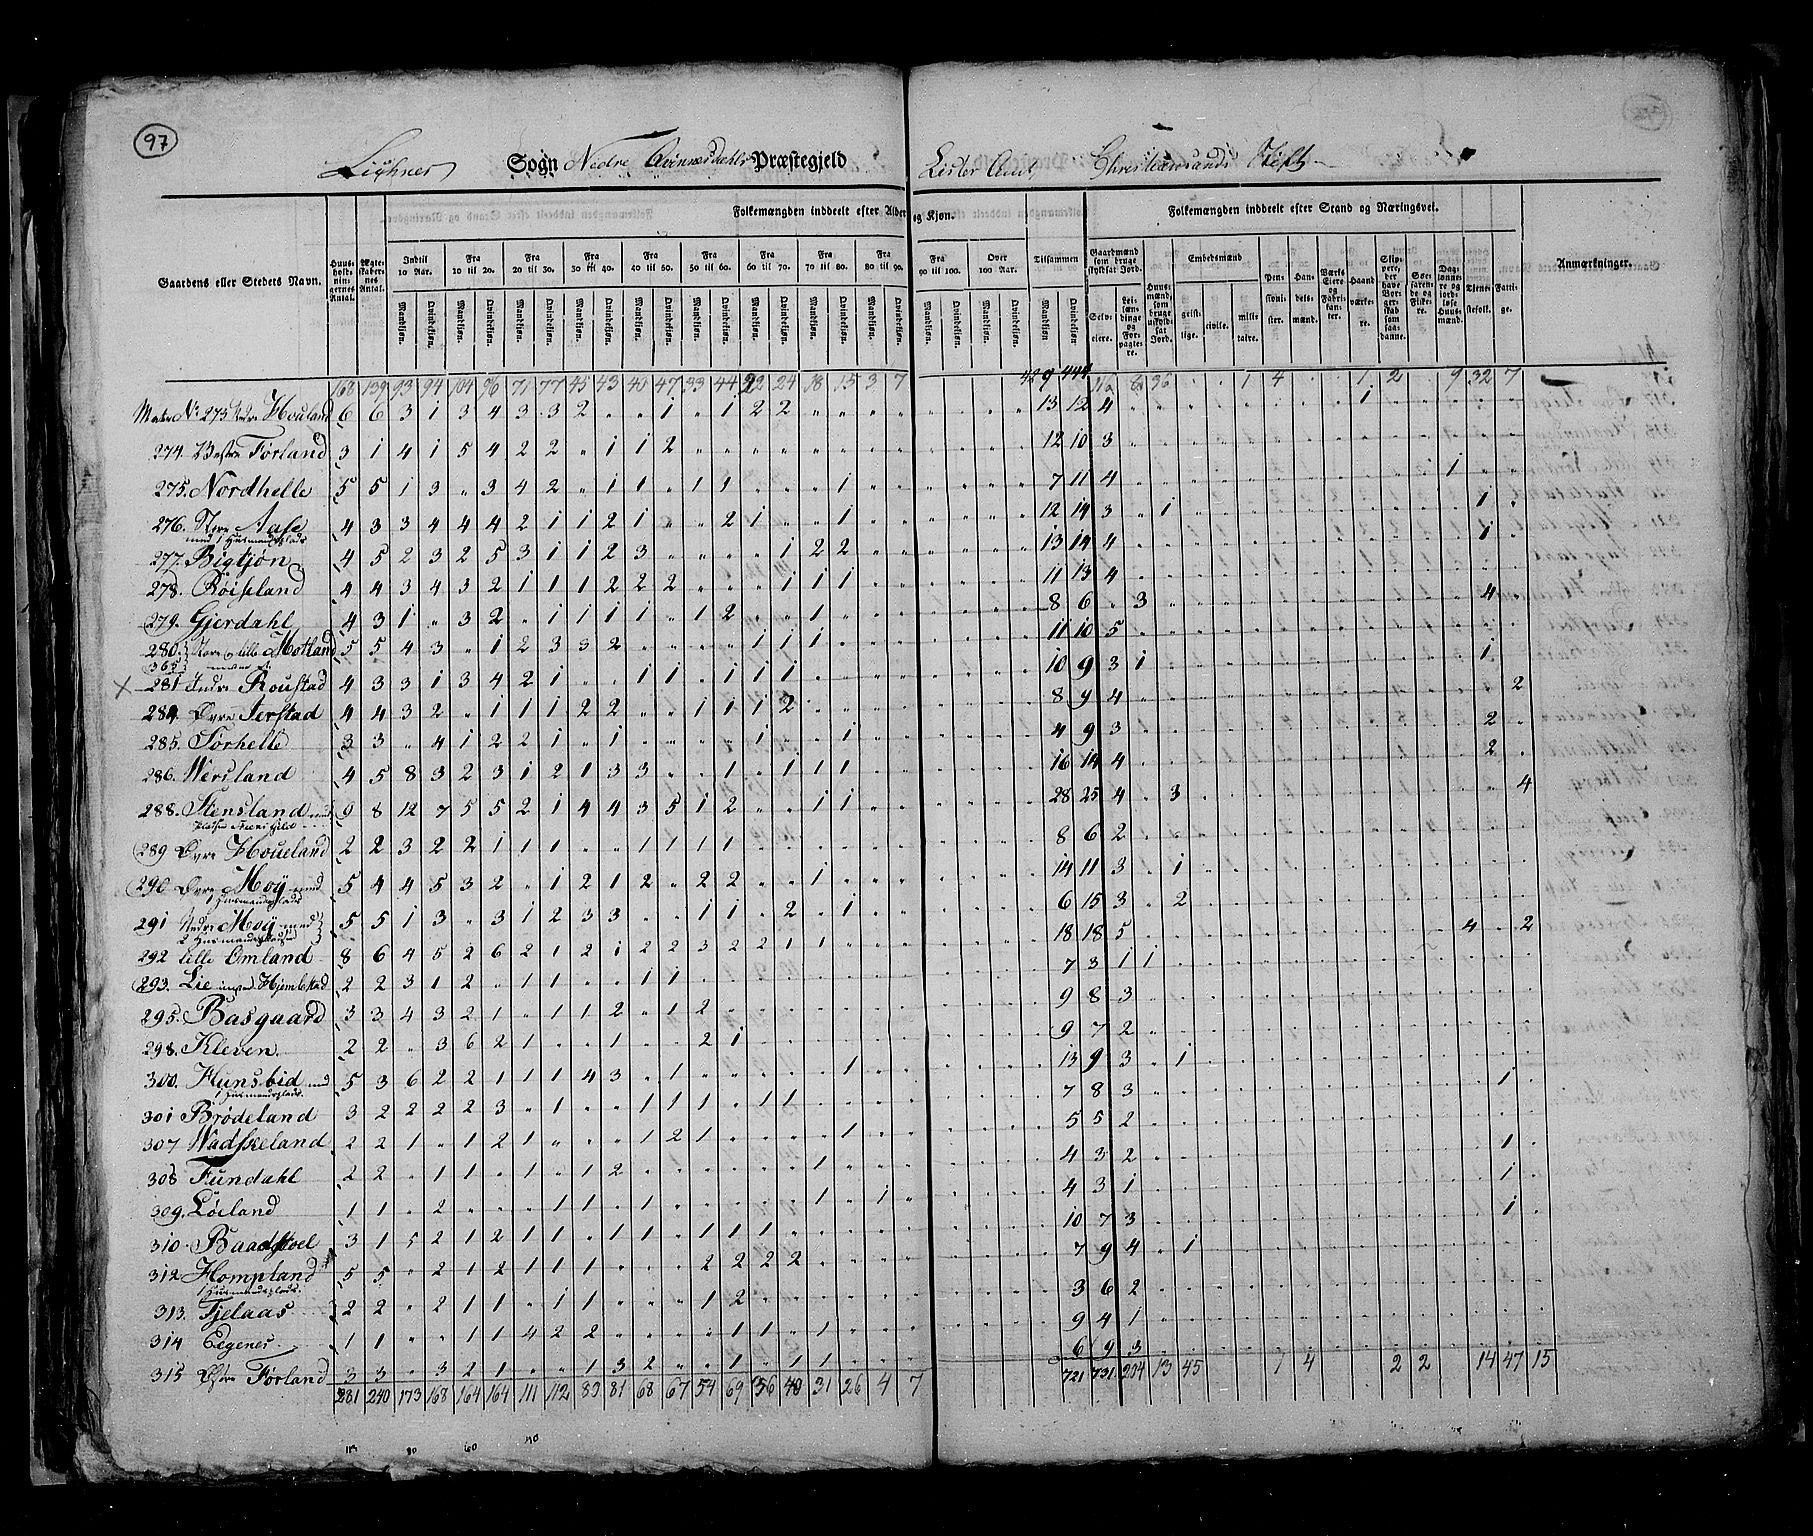 97
Sogn Nedre Præstegjeld Lister Amt, Christiansands Stift
Folkemængden inddeelt efter Alder og Kjøn. Folkemængden inddeelt efter Stand og Næringsvei.
Gaardens eller Stedets Navn. Huusholdningernes Antal. Ægteskabernes Antal. Indtil 10 Aar. Fra 10 til 20. Fra 20 til 30. Fra 30 til 40. Fra 40 til 50. Fra 50 til 60. Fra 60 til 70. Fra 70 til 80. Fra 80 til 90. Fra 90 til 100. Over 100 Aar. Tilsammen Gaardmænd som bruge skyldsat Jord. Huusmænd, som bruge uskyldsat Jord. Embedsmænd Pensionister. Handelsmænd. Værks Eiere og Fabrikanter. Haandværkere. Skippere, der have Borgerskab som saadanne. Søefarende og Fiskere. Daglønnere og jordløse Huusmænd. Tjenestefolk. Fattige. Anmærkninger.
Mandkjøn. Qvindekjøn. Mandkjøn. Qvindekjøn. Mandkjøn. Qvindekjøn. Mandkjøn. Qvindekjøn. Mandkjøn. Qvindekjøn. Mandkjøn. Qvindekjøn. Mandkjøn. Qvindekjøn. Mandkjøn. Qvindekjøn. Mandkjøn. Qvindekjøn. Mandkjøn. Qvindekjøn. Mandkjøn. Qvindekjøn. Mandkjøn Qvindekjøn. Selveiere. Leilændinge og Forpagtere. geistlige. civile. militaire.
163 139 93 94 104 96 71 77 45 43 40 47 33 44 22 24 18 15 3 7 429 444 36 1 4 1 2 9 32 7
273 Houland 6 6 3 1 3 4 3 3 2 1 1 2 2 13 12 4 1
274 Vestre Førland 3 1 4 1 5 4 2 2 1 1 2 12 10 3
275. Nordhelle 5 5 1 3 3 4 2 1 1 1 1 1 7 11 4 1
276. Aase 4 3 3 4 4 4 2 1 1 2 1 2 1 1 12 14 3 1 1
med 1 Husmandsplads
277. Bigtjøn 4 5 2 3 2 5 3 1 1 2 3 1 2 2 13 14 4 1
278. Røiseland 4 4 3 4 3 2 1 1 1 2 2 2 1 1 1 11 13 4
279. Gjerdahl 4 3 1 3 2 1 1 1 1 1 1 2 1 8 6 3 4
280. lille Motland 5 5 4 3 1 2 3 3 2 1 1 1 11 10 5
365
281 Indre Roustad 4 3 3 1 3 4 2 1 1 1 1 1 1 10 9 3 1 1
284. Øvre Jerstad 4 4 3 2 1 1 1 2 2 1 1 1 2 8 9 4 2
285. Torhelle 3 3 4 1 2 2 1 1 1 1 4 9 3 2
286. Versland 4 5 8 3 2 3 1 2 1 3 3 1 1 1 1 16 14 4 2
288. Stensland med 9 8 12 7 5 5 2 1 4 4 3 5 1 2 1 1 28 25 4 3 4
289 Øvre Houeland 2 2 3 2 2 1 1 1 1 1 1 1 8 6 2
290 Øvre Moÿ med 5 4 4 5 3 2 1 2 1 2 2 2 1 14 11 3 1
1 Husmandsplads
291 Nedre Moÿ med 5 5 1 3 3 1 2 3 3 1 1 2 1 6 15 3 2
2 Husmandspladse
292 Lille Omland 8 6 4 5 2 6 2 1 2 1 2 2 3 2 2 1 1 18 18 5 4 2
293. Lie 2 2 3 1 2 1 1 1 1 7 3 1 1
295. Basgaard 3 3 4 3 2 1 1 1 2 1 2 9 8 3
298. Kleven. 2 2 3 6 2 1 1 2 1 9 7 2
300. Hunsbid med 5 3 6 2 2 1 1 1 4 3 1 1 13 9 3 1
1 Husmandsplads
301 Brødeland 3 2 2 2 2 3 1 1 1 1 1 1 7 8 3 1
307 Vadskeland 2 2 1 1 2 1 1 2 1 1 5 5 2
308 Fundahl 2 2 1 1 1 1 2 1 4 3 2 1
309. Løeland 1 1 2 1 1 1 1 1 4 3 1 1
310 Baadstoel 3 1 5 2 1 2 1 1 1 1 1 1 10 7 3 1
312 Hompland 5 5 2 1 2 1 1 1 2 2 2 2 7 9 4 1
1 Husmandsplads.
313. Fjelaas 2 2 2 1 1 1 1 1 2 3 6 2
314 Eegenes. 1 1 1 1 4 2 2 1 1 1 9 4 1
315 Østre Førland 3 3 3 2 1 1 3 2 1 1 1 6 9 3
281 240 173 168 164 164 111 112 89 81 68 67 54 69 36 40 31 26 4 7 721 731 204 13 45 1 4 2 2 14 47 15